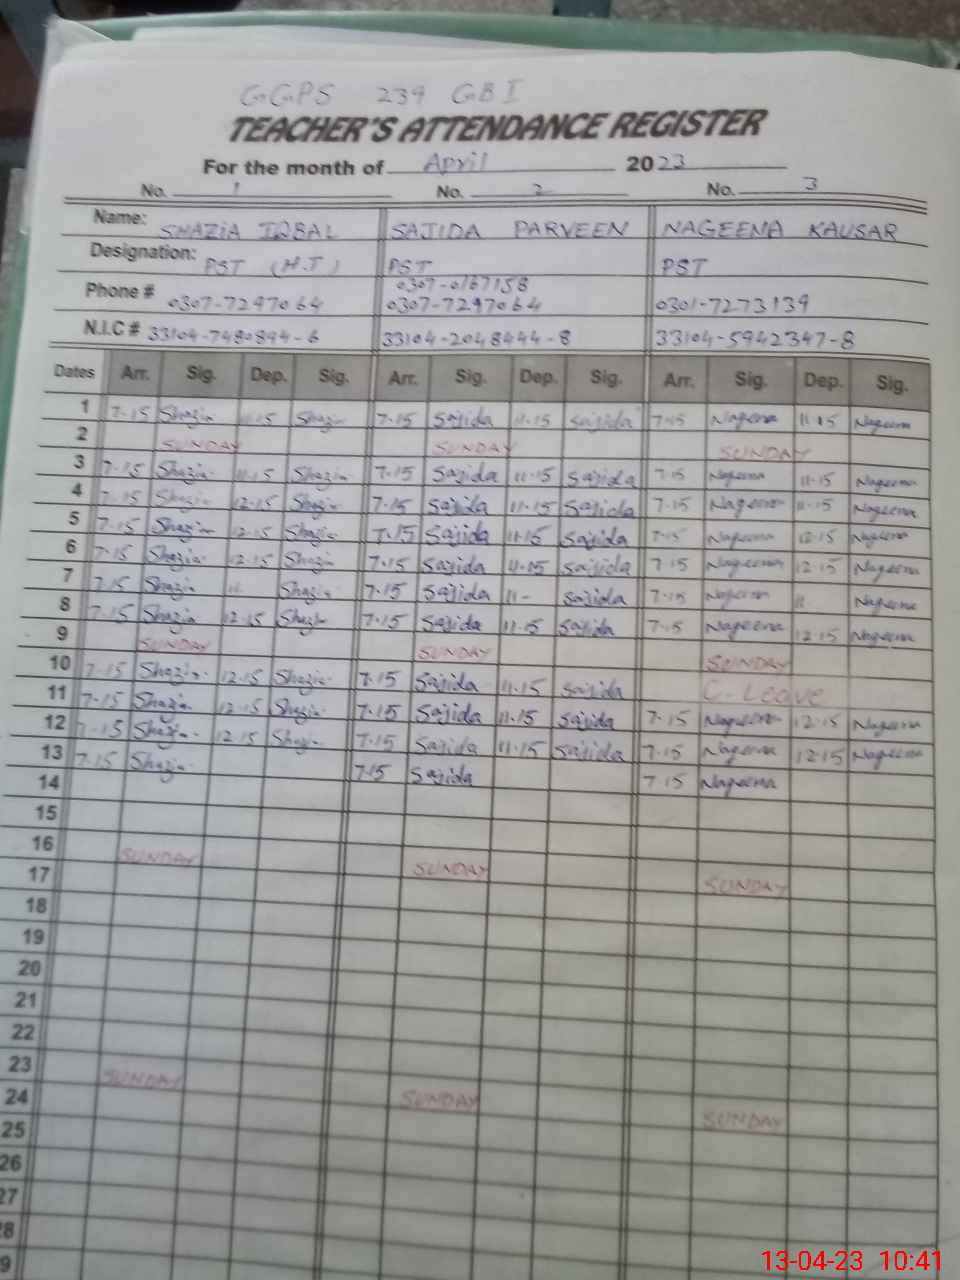 GGPS 239 GBI
TEACHER'S ATTENDANCE REGISTER
For the month of April 2023
No. 1 No. 2 No. 3
Name: SHAZIA IQBAL SAJIDA PARVEEN NAGEENA KAUSAR
Designation: PST (H.T) PST PST
0307-0167158
Phone # 0307-7297064 0307-7297064 0301-7273139
N.I.C # 33104-7480894-6 33104-2048444-8 33104-5942347-8
Dates Arr. Sig. Dep. Sig. Arr. Sig. Dep. Sig. Arr. Sig. Dep. Sig.
1 7-15 Shazia 11-15 Shazia 7-15 Sajida 11-15 Sajida 7-15 Nageena 11-15 Nageena
2 SUNDAY SUNDAY SUNDAY
3 7-15 Shazia 11-15 Shazia 7-15 Sajida 11-15 Sajida 7-15 Nageena 11-15 Nageena
4 7-15 Shazia 12-15 Shazia 7-15 Sajida 11-15 Sajida 7-15 Nageena 11-15 Nageena
5 7-15 Shazia 12-15 Shazia 7-15 Sajida 11-15 Sajida 7-15 Nageena 12-15 Nageena
6 7-15 Shazia 12-15 Shazia 7-15 Sajida 11-15 Sajida 7-15 Nageena 12-15 Nageena
7 7-15 Shazia 11 Shazia 7-15 Sajida 11- Sajida 7-15 Nageena 11 Nageena
8 7-15 Shazia 12-15 Shazia 7-15 Sajida 11-15 Sajida 7-15 Nageena 12-15 Nageena
9 SUNDAY SUNDAY SUNDAY
10 7-15 Shazia 12-15 Shazia 7-15 Sajida 11-15 Sajida C-Leave
11 7-15 Shazia 12-15 Shazia 7-15 Sajida 11-15 Sajida 7-15 Nageena 12-15 Nageena
12 7-15 Shazia 12-15 Shazia 7-15 Sajida 11-15 Sajida 7-15 Nageena 12-15 Nageena
13 7-15 Shazia 7-15 Sajida 7-15 Nageena
14
15
16 SUNDAY SUNDAY SUNDAY
17
18
19
20
21
22
23 SUNDAY SUNDAY SUNDAY
24
25
26
27
28
9
13-04-23 10:41